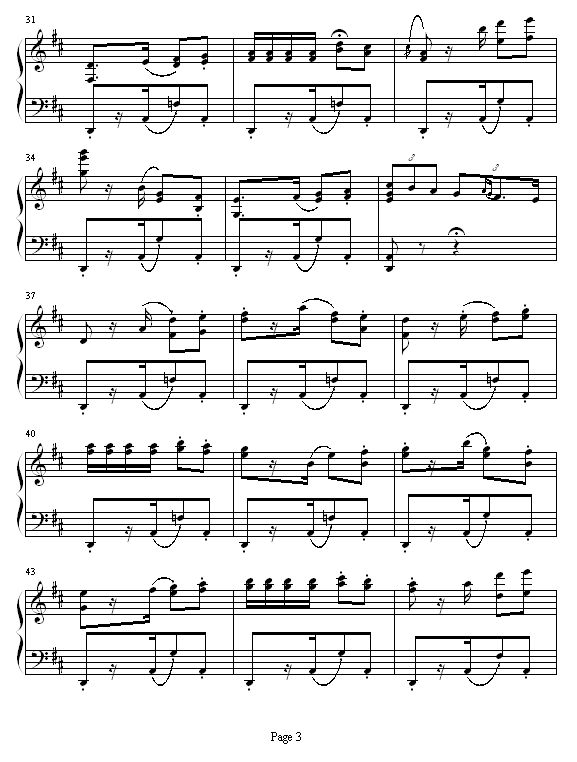 31
34
3 3
37
40
43
Page 3